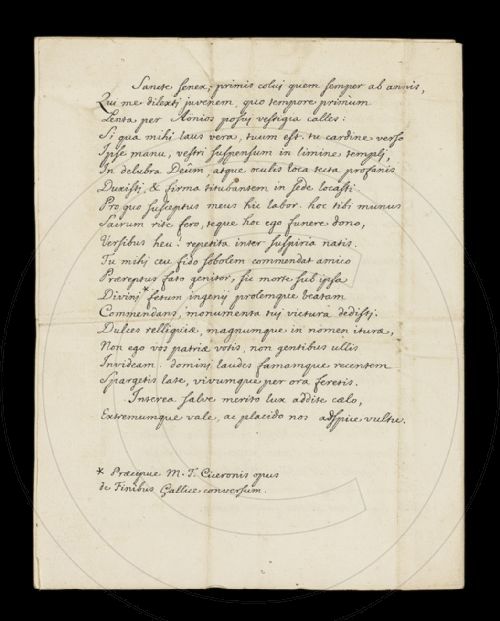 Sancte senex, primis colui quem semper ab annis,
Qui me dilexti juvenem, quo tempore primum
Lenta per Aonios posui vestigia calles:
Si qua mihi laus vera, tuum est. tu cardine verso
Ipse manu, vestri suspensum in limine templi,
In delubra Deûm, atque oculis loca tecta profanis
Duxisti, & firma titubantem in sede locasti.
Pro quo susceptus meus hic labor. hoc tibi munus
Sacrum rite fero, teque hoc ego funere dono,
Versibus heu! repetita inter suspiria natis.
Tu mihi, ceu fido sobolem commendat amico
Præreptus fato genitor, sic morte sub ipsa
Divini * fœtum ingenij prolemque beatam
Commendans, monumenta tui victura dedisti.
Dulces relliquiæ, magnumque in nomen ituræ,
Non ego vos patriæ votis, non gentibus ullis
Invideam: domini laudes famamque recentem
Spargetis late, vivumque per ora feretis.
Interea salve merito lux addite cælo,
Extremumque vale, ac placido nos adspice vultu.
* Præcipue M. T. Ciceronis opus
de Finibus Gallice conversum.